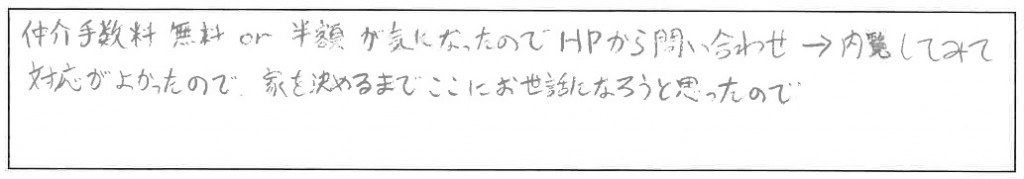 仲介手数料 無料 or 半額 が気になったので HPから問い合わせ → 内覧してみて
対応がよかったので、家を決めるまでここにお世話になろうと思ったので